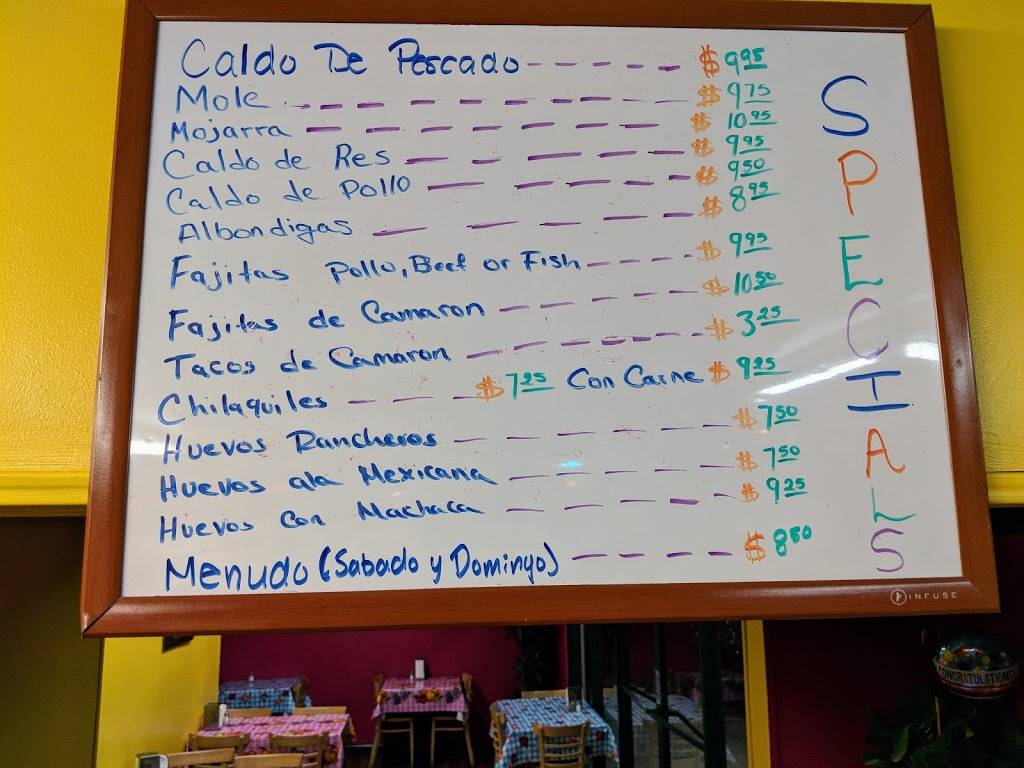 Caldo De Pescado ----- $9.95
Mole --------- $9.75
Mojarra ------- $10.95
Caldo de Res ----- $9.95
Caldo de Pollo ----- $9.50
Albondigas ----- $8.95
Fajitas Pollo, Beef or Fish ---- $9.95
Fajitas de Camaron ----- $10.50
Tacos de Camaron ------- $3.25
Chilaquiles ---- $7.25 Con Carne $9.25
Huevos Rancheros ------ $7.50
Huevos ala Mexicana ------ $7.50
Huevos Con Machaca ------ $9.25
Menudo (Sabado y Domingo) ---- $8.50
SPECIALS
INFUSE
CONGRATULATIONS